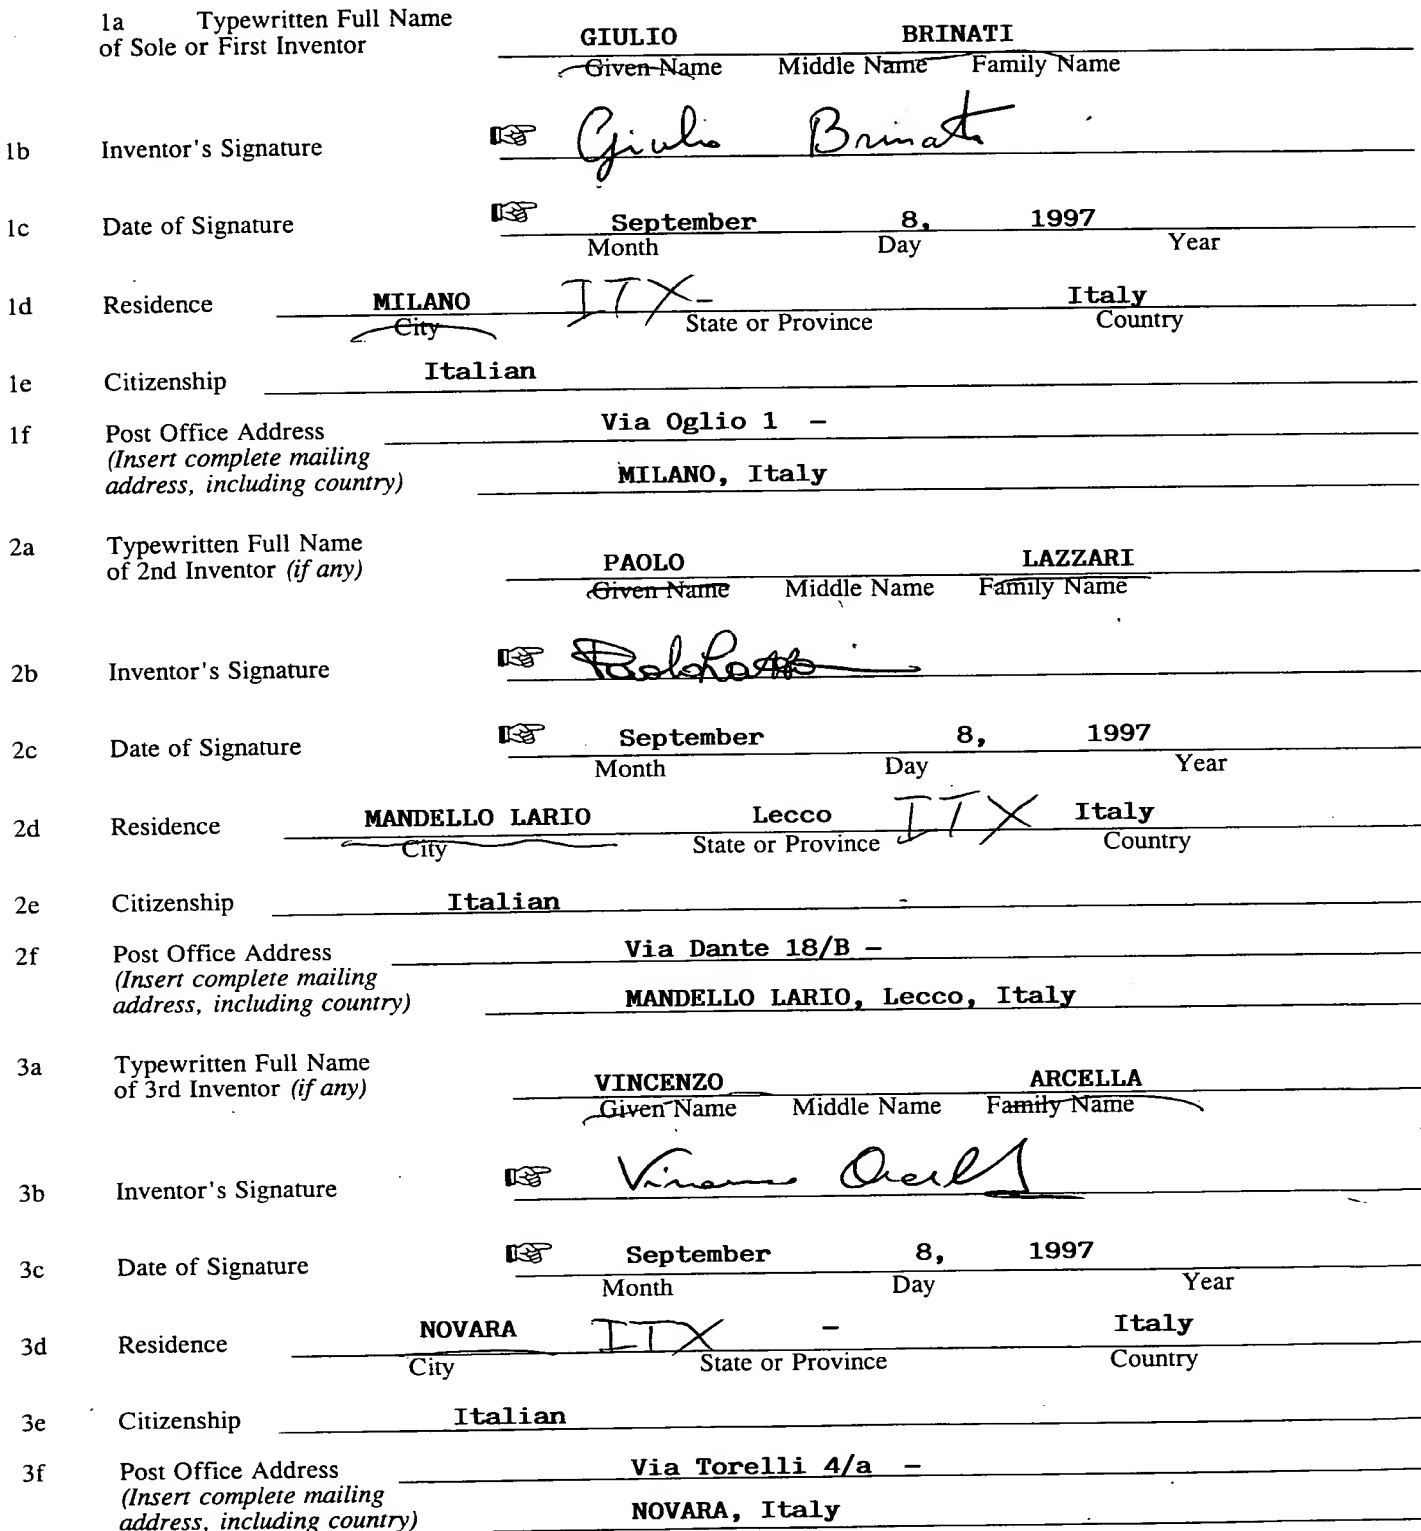 1a Typewritten Full Name
of Sole or First Inventor GIULIO BRINATI
Given Name Middle Name Family Name
1b Inventor's Signature Giulio Brinati
1c Date of Signature September 8, 1997
Month Day Year
1d Residence MILANO ITX - Italy
City State or Province Country
1e Citizenship Italian
1f Post Office Address Via Oglio 1 -
(Insert complete mailing
address, including country) MILANO, Italy
2a Typewritten Full Name
of 2nd Inventor (if any) PAOLO LAZZARI
Given Name Middle Name Family Name
2b Inventor's Signature Paolo Lazzari
2c Date of Signature September 8, 1997
Month Day Year
2d Residence MANDELLO LARIO Lecco ITX Italy
City State or Province Country
2e Citizenship Italian
2f Post Office Address Via Dante 18/B -
(Insert complete mailing
address, including country) MANDELLO LARIO, Lecco, Italy
3a Typewritten Full Name
of 3rd Inventor (if any) VINCENZO ARCELLA
Given Name Middle Name Family Name
3b Inventor's Signature Vincenzo Arcella
3c Date of Signature September 8, 1997
Month Day Year
3d Residence NOVARA ITX - Italy
City State or Province Country
3e Citizenship Italian
3f Post Office Address Via Torelli 4/a -
(Insert complete mailing
address, including country) NOVARA, Italy